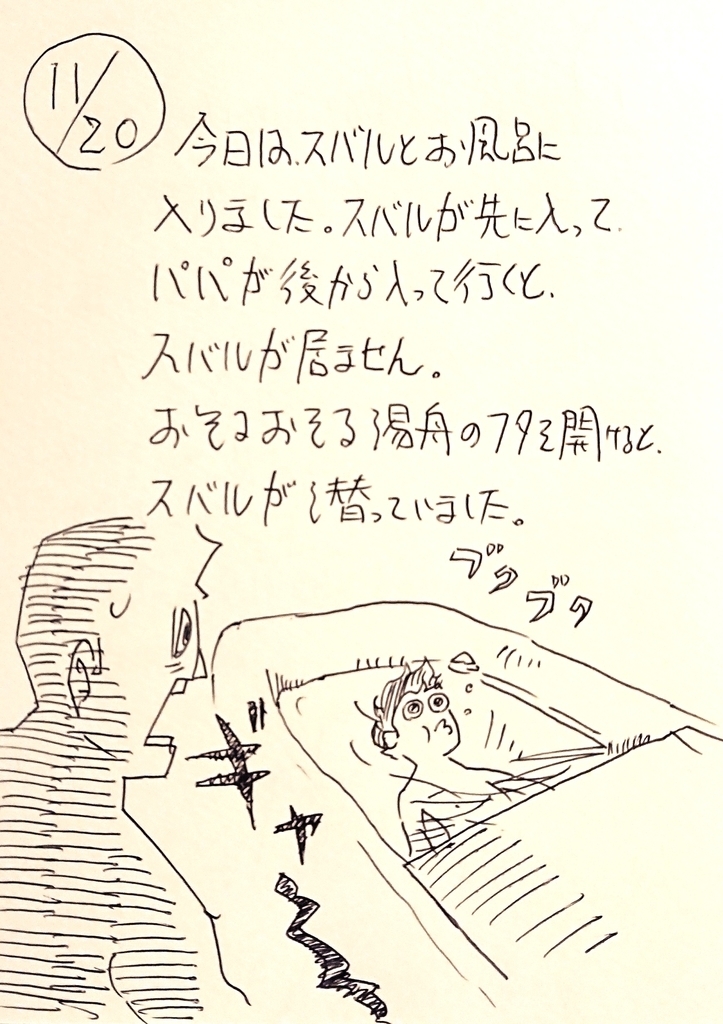 11/20
今日は、スバルとお風呂に
入りました。スバルが先に入って、
パパが後から入って行くと、
スバルが居ません。
おそるおそる湯舟のフタを開けると、
スバルが潜っていました。
ブクブク
ギャー